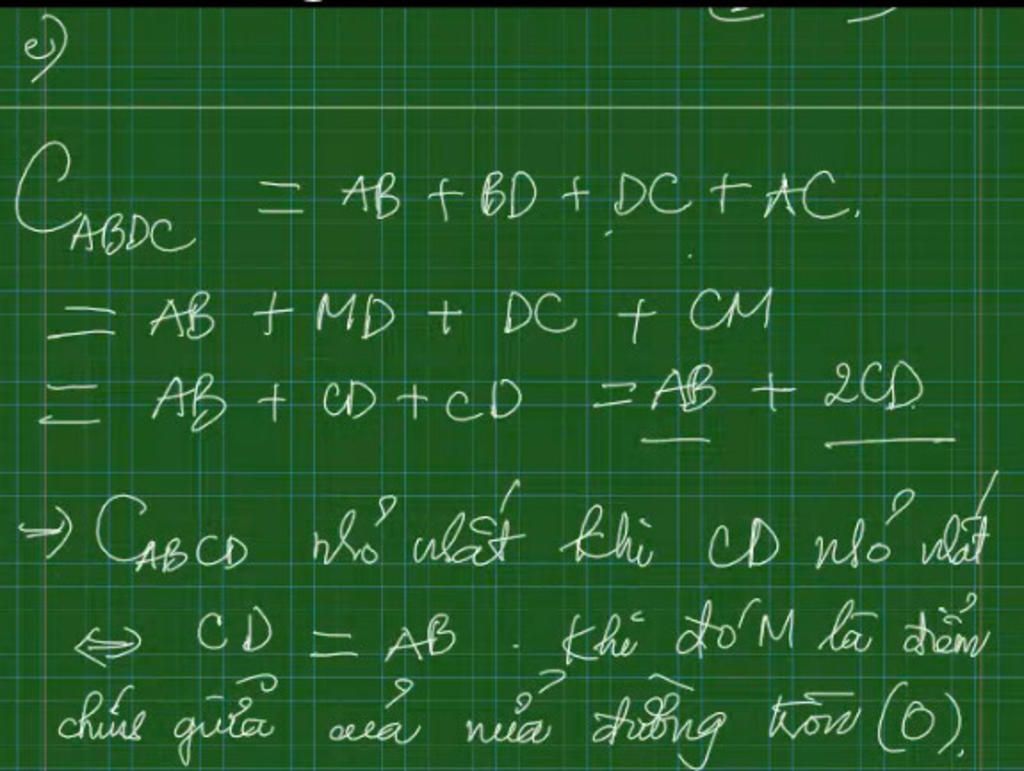 e)
C_ABDC = AB + BD + DC + AC.
= AB + MD + DC + CM
= AB + CD + CD = AB + 2CD
→ C_ABCD nhỏ nhất khi CD nhỏ nhất
⇔ CD = AB. Khi đó M là điểm
chính giữa của nửa đường tròn (O).